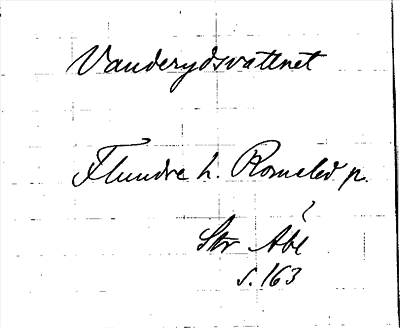 Vanderydsvattnet
Flundre h. Romeled p.
Str Åbl
s. 163